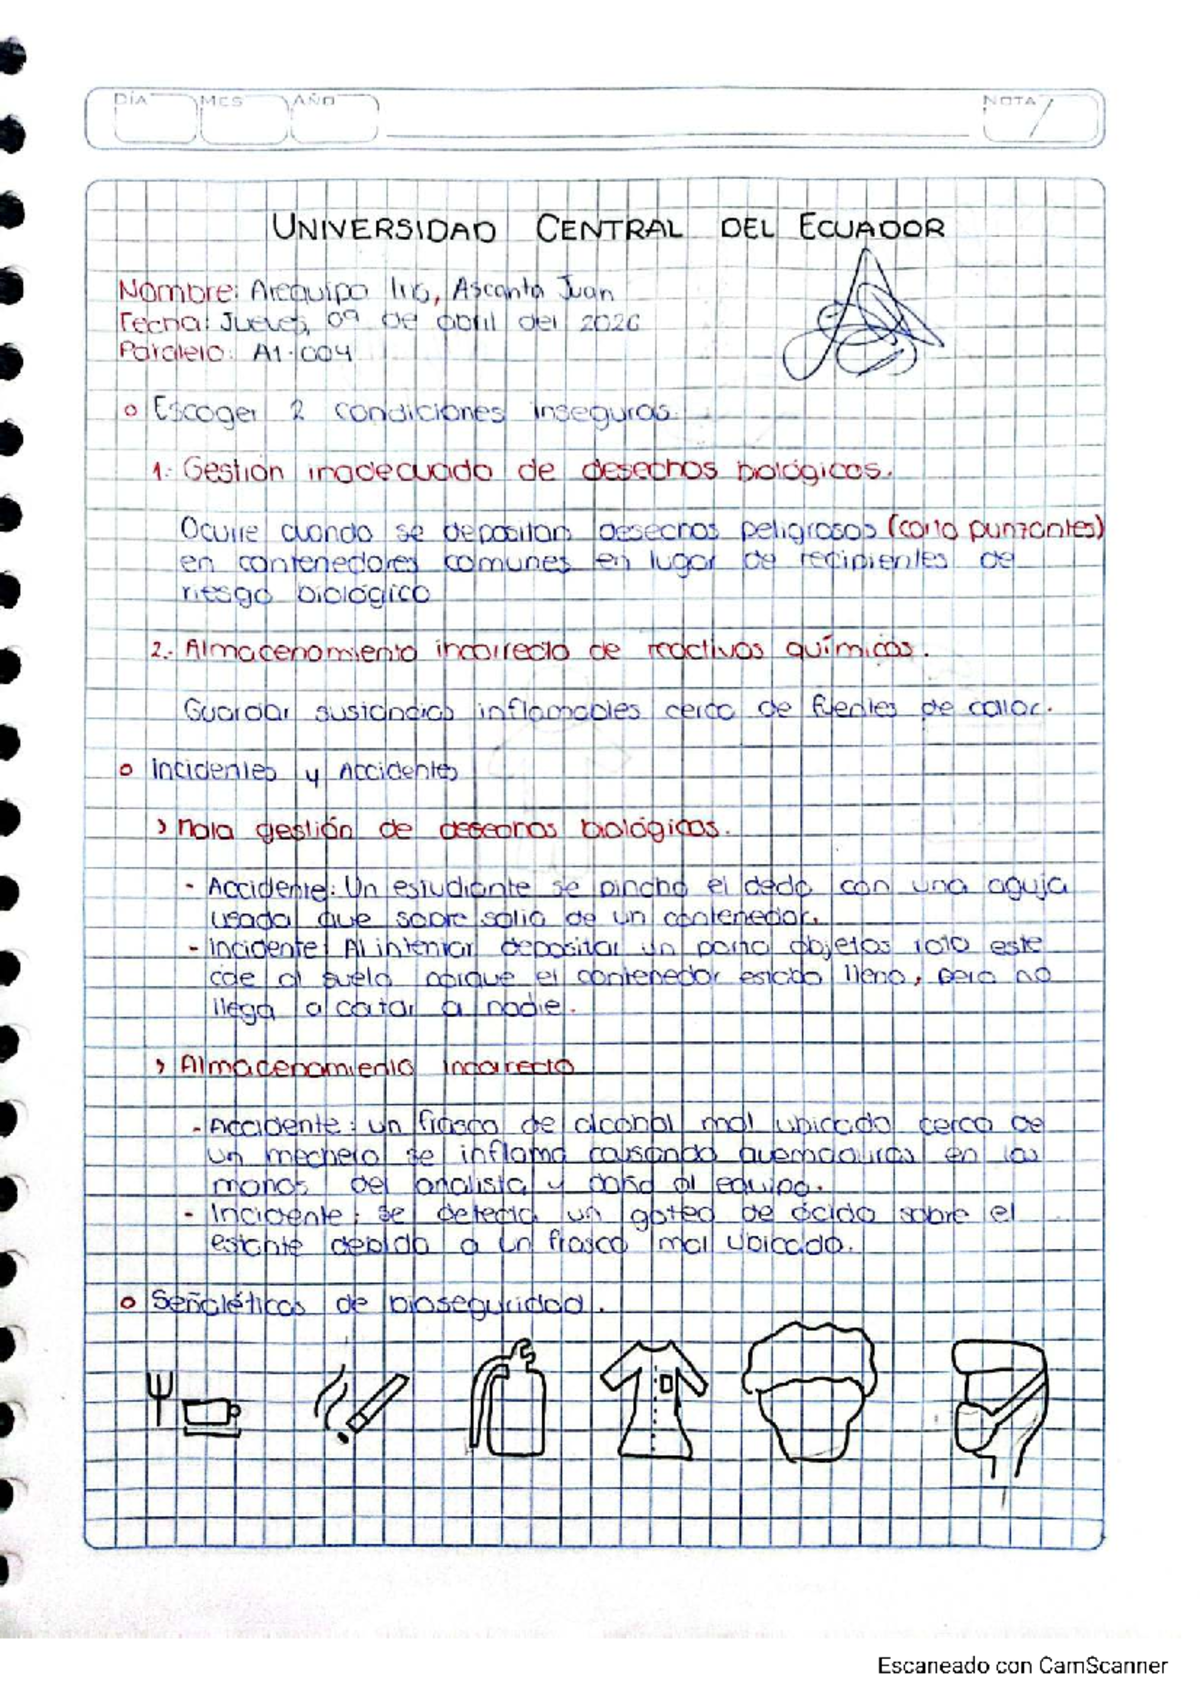 DÍA MES AÑO NOTA
UNIVERSIDAD CENTRAL DEL ECUADOR
Nombre: Arequipa Iris, Ascanta Juan
Fecha: Jueves, 09 de abril del 2026
Paralelo: A1-004
Escoger 2 condiciones inseguras.
1.- Gestión inadecuada de desechos biológicos.
Ocurre cuando se depositan desechos peligrosos (corto punzantes)
en contenedores comunes en lugar de recipientes de
riesgo biológico
2.- Almacenamiento incorrecto de reactivos químicos.
Guardar sustancias inflamables cerca de fuentes de calor.
Incidentes y Accidentes
> Mala gestión de desechos biológicos.
- Accidente: Un estudiante se pincha el dedo con una aguja
usada que sobre salía de un contenedor.
- Incidente: Al intentar depositar un porta objetos roto este
cae al suelo porque el contenedor estaba lleno, pero no
llega a cortar a nadie.
> Almacenamiento incorrecto
- Accidente: un frasco de alcohol mal ubicado cerca de
un mechero se inflama causando quemaduras en las
manos del analista y daño al equipo.
- Incidente: se detecta un goteo de ácido sobre el
estante debido a un frasco mal ubicado.
Señaléticas de bioseguridad.
Escaneado con CamScanner